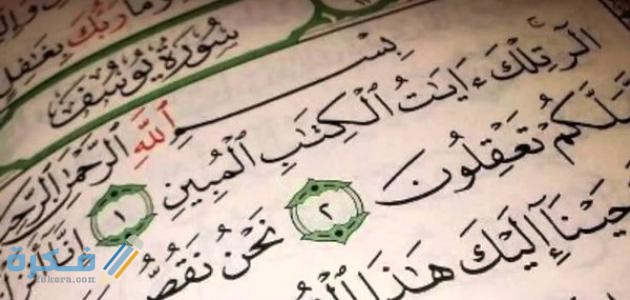 وَمَا رَبُّكَ بِغَافِلٍ
سُورَةُ يُوسُفَ
بِسْمِ اللَّهِ الرَّحْمَٰنِ الرَّحِيمِ
الٓر تِلْكَ ءَايَٰتُ الْكِتَٰبِ الْمُبِينِ ١ إِنَّا
لَّعَلَّكُمْ تَعْقِلُونَ ٢ نَحْنُ نَقُصُّ
إِلَيْكَ هَٰذَا
فكرة
fekera.com